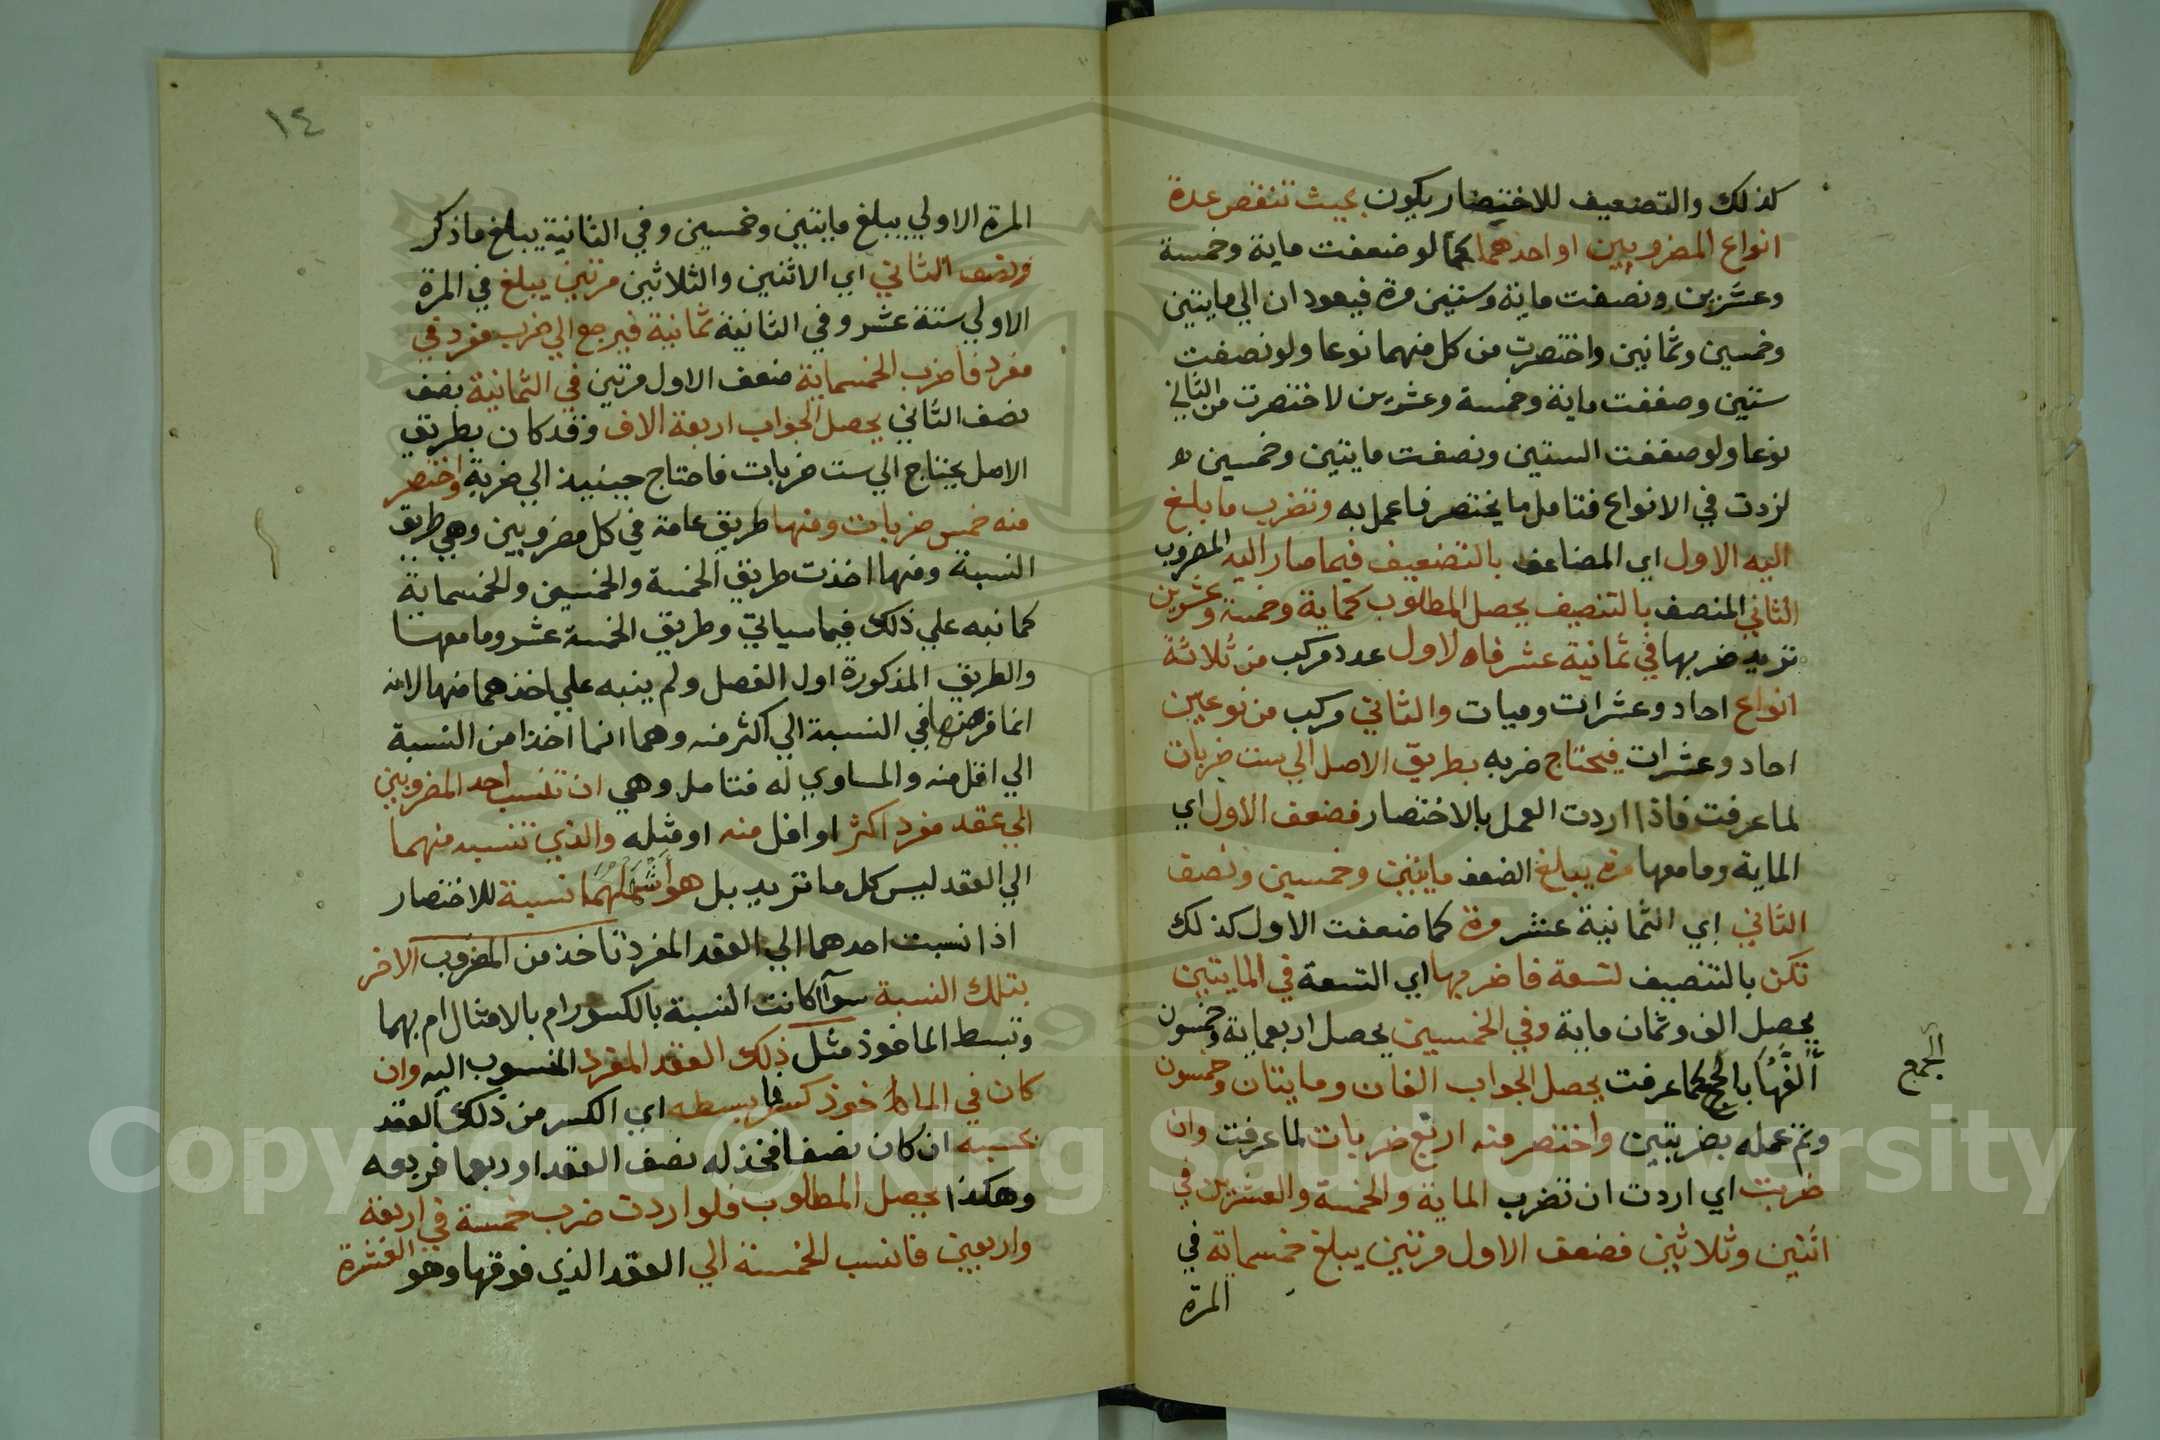 كذلك والتضعيف للاختصار يكون بحيث تنقص عدة
انواع المضروبين او احدهما كما لو ضعفت ماية وخمسة
وعشرين ونصفت ماية وستين مرة فيعودان الي مايتين
وخمسين وثمانين واختصرت من كل منهما نوعا ولو نصفت
ستين وضعفت ماية وخمسة وعشرين لاختصرت من الثاني
نوعا ولو ضعفت الستين ونصفت مايتين وخمسين
لزدت في الانواع فتامل ما يختصر فاعمل به وتضرب ما بلغ
اليه الاول اي المضاعف بالتضعيف فيما صار اليه المضروب
الثاني المنصف بالتنصيف يحصل المطلوب كماية وخمسة وعشرين
تريد ضربها في ثمانية عشر فالاول عدد مركب من ثلاثة
انواع احاد وعشرات وميات والثاني مركب من نوعين
احاد وعشرات فيحتاج ضربه بطريق الاصل الي ست ضربات
لما عرفت فاذا اردت العمل بالاختصار فضعف الاول اي
الماية وما معها مرة يبلغ الضعف مايتين وخمسين ونصف
الثاني اي الثمانية عشر مرة كما ضعفت الاول كذلك
تكن بالتنصيف تسعة فاضربها اي التسعة في المايتين
يحصل الف وثمان ماية وفي الخمسين يحصل اربعماية وخمسون
الجمع
ألفها بالجمع كما عرفت يحصل الجواب الفان ومايتان وخمسون
وتم عمله بضربتين واختصر منه اربع ضربات لما عرفت وان
ضربت اي اردت ان تضرب الماية والخمسة والعشرين في
اثنين وثلاثين فضعف الاول مرتين يبلغ خمسماية في
المرة
١٤
المرة الاولي يبلغ مايتين وخمسين وفي الثانية يبلغ ما ذكر
ونصف الثاني اي الاثنين والثلاثين مرتين يبلغ في المرة
الاولي ستة عشر وفي الثانية ثمانية فيرجع الي ضرب مفرد في
مفرد فاضرب الخمسماية ضعف الاول مرتين في الثمانية نصف
نصف الثاني يحصل الجواب اربعة الاف وقد كان بطريق
الاصل يحتاج الي ست ضربات فاحتاج حينيذ الي ضربة واختصر
منه خمس ضربات ومنها طريق عامة في كل مضروبين وهي طريق
النسبة ومنها اخذت طريق الخمسة والخمسين والخمسماية
كما نبه علي ذلك فيما سياتي وطريق الخمسة عشر وما معها
والطريق المذكورة اول الفصل ولم ينبه علي اخذهما منها لانه
انما فرضها في النسبة الي اكثر منه وهما انما اخذا من النسبة
الي اقل منه والمساوي له فتامل وهي ان تنسب احد المضروبين
الي عقد مفرد اكثر او اقل منه او مثله والذي تنسبه منهما
الي العقد ليس كل ما تريد بل هو أشملهما نسبة للاختصار
اذا نسبت احدهما الي العقد المفرد تاخذ من المضروب الاخر
بتلك النسبة سوآا كانت النسبة بالكسور ام بالامثال ام بهما
وتبسط الماخوذ مثل ذلك العقد المفرد المنسوب اليه وان
كان في الماخوذ كسر فابسطه اي الكسر من ذلك العقد
بحسبه ان كان نصفا فخذ له نصف العقد او ربعا فربعه
وهكذا يحصل المطلوب فلو اردت ضرب خمسة في اربعة
واربعين فانسب الخمسة الي العقد الذي فوقها وهو العشرة
Copyright © King Saud University
1957